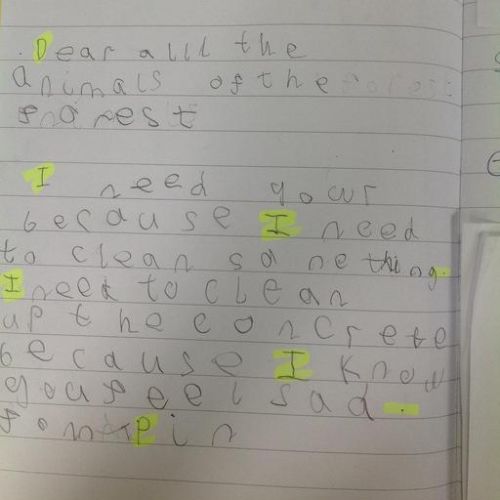 Dear alll the
animals of the forest
fnorest
I need your
because I need
to clean so me thing.
I need to clean
up the concrete
because I know
you feel sad.
fom Pin